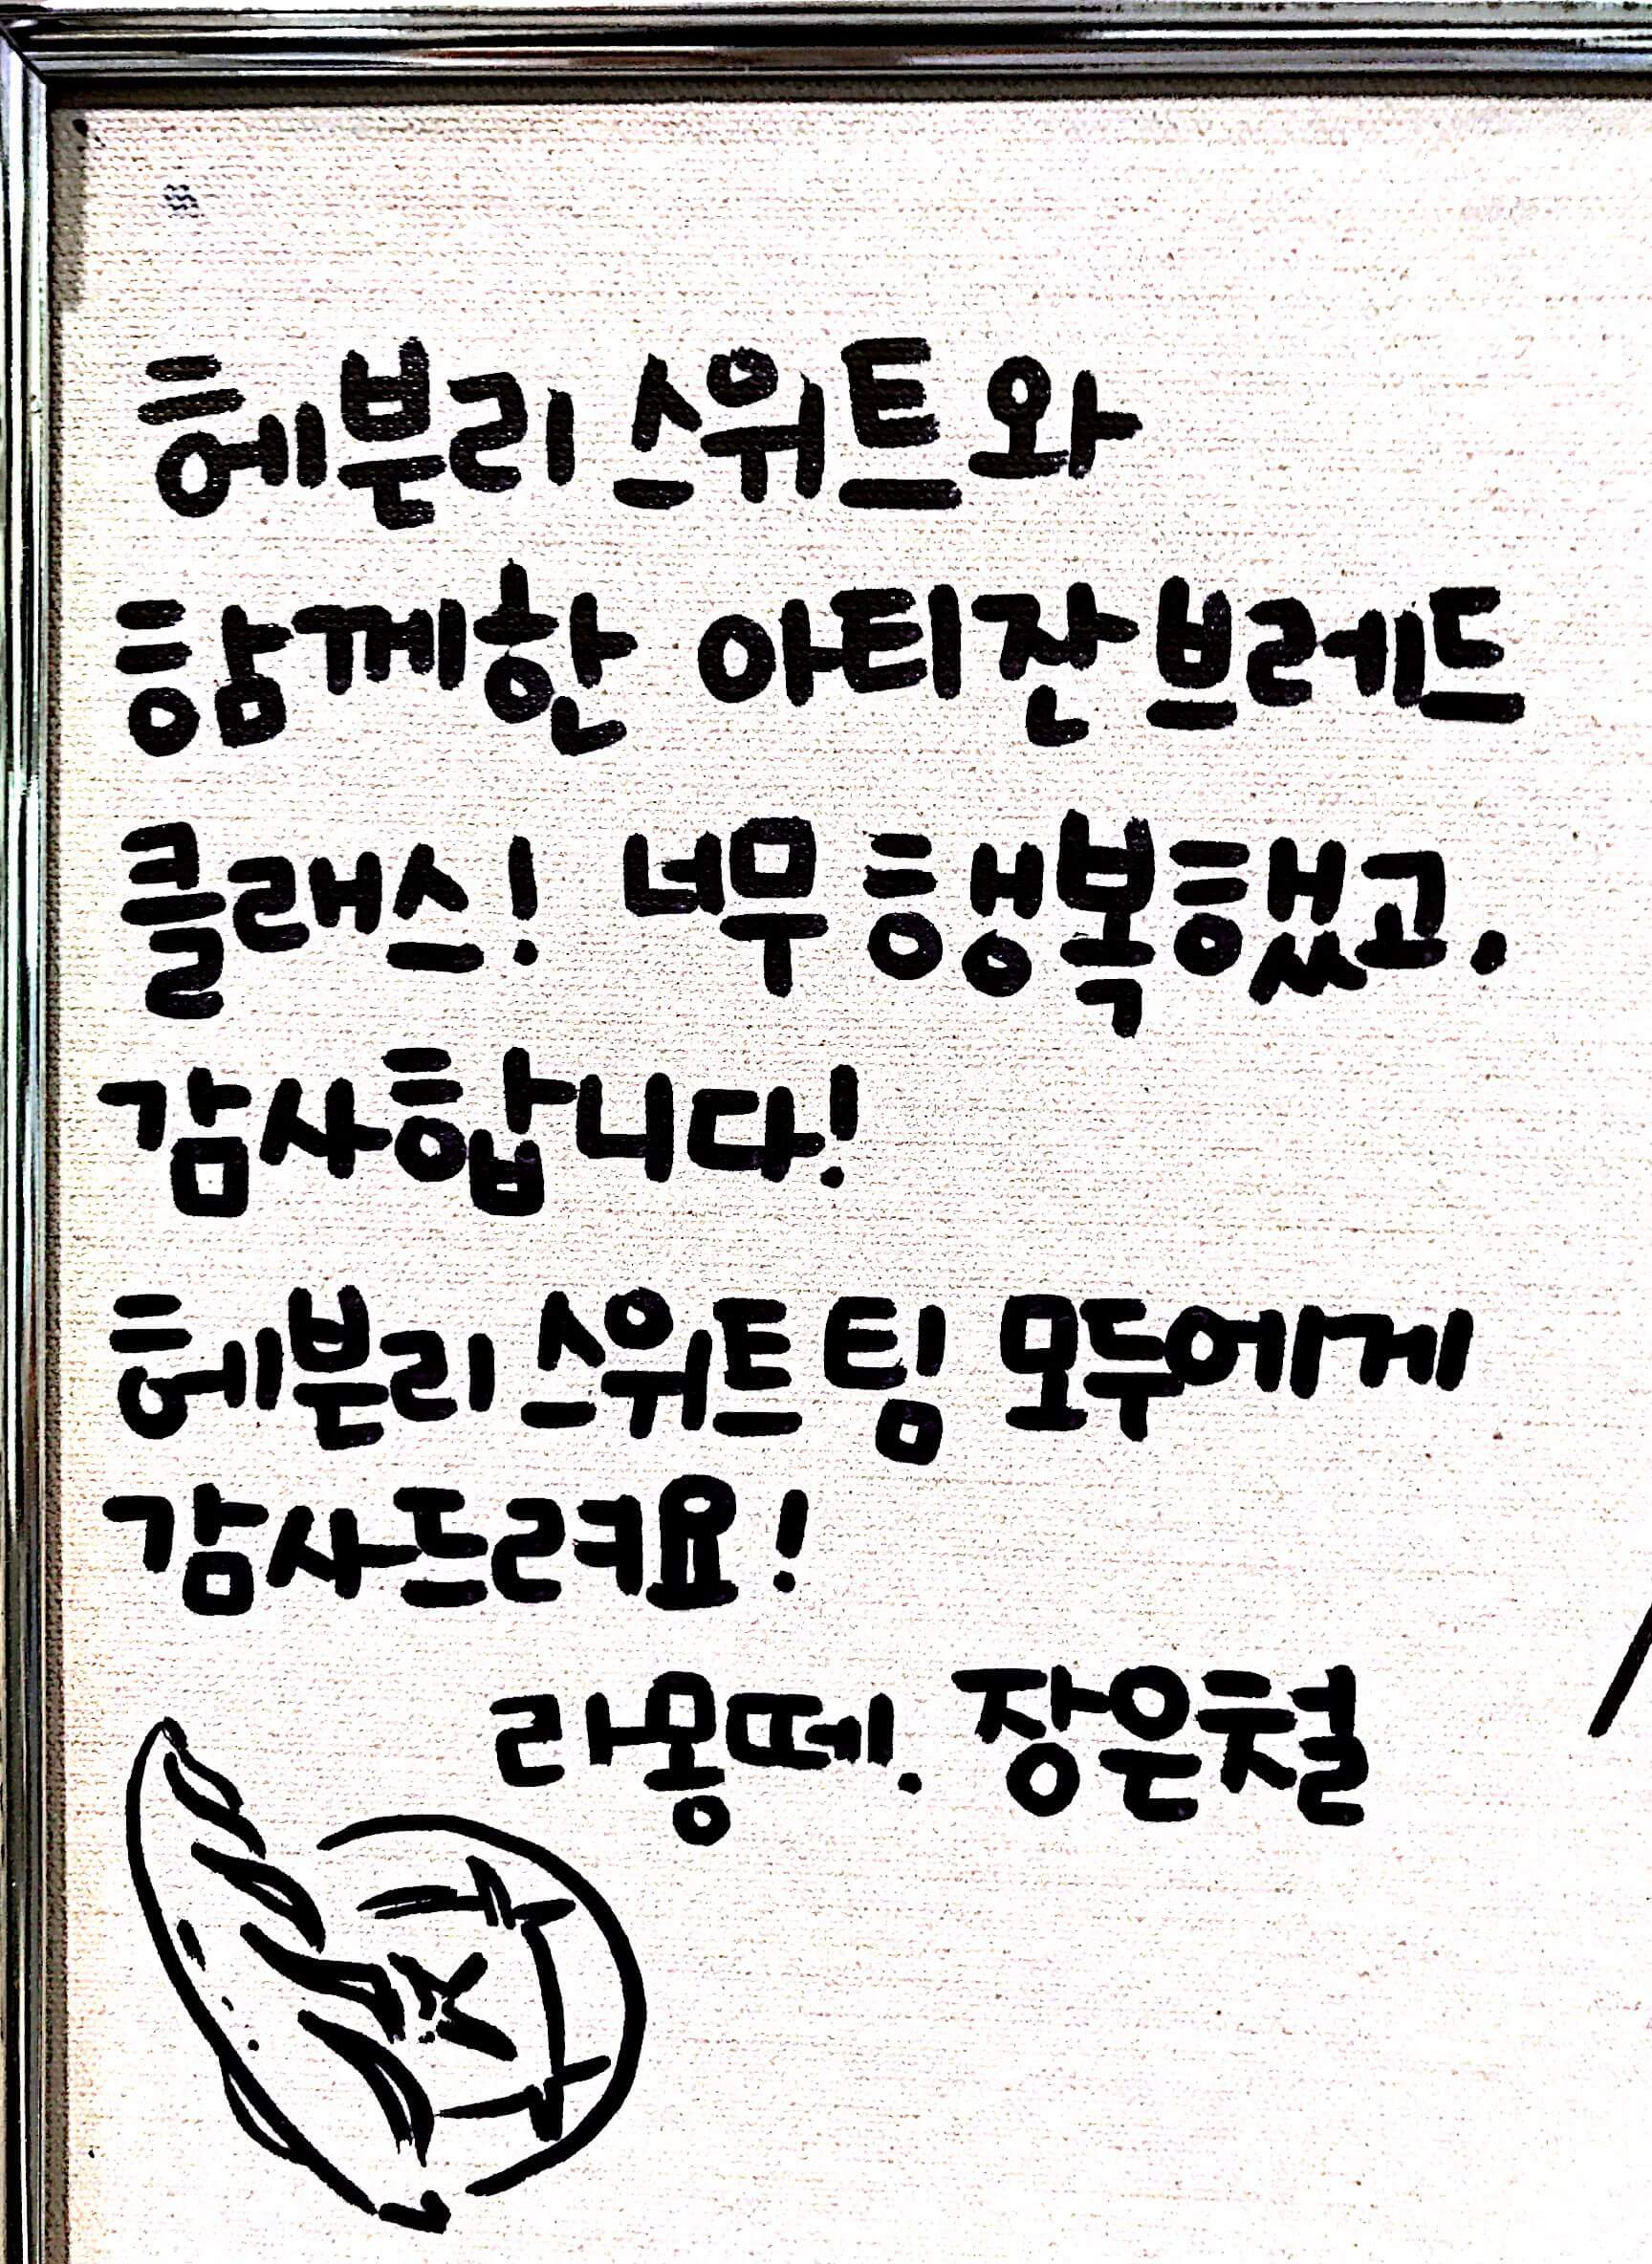 헤븐리 스위트와
함께한 아티잔브레드
클래스! 너무 행복했고,
감사합니다!
헤븐리 스위트팀 모두에게
감사드려요!
라몽떼. 장은철